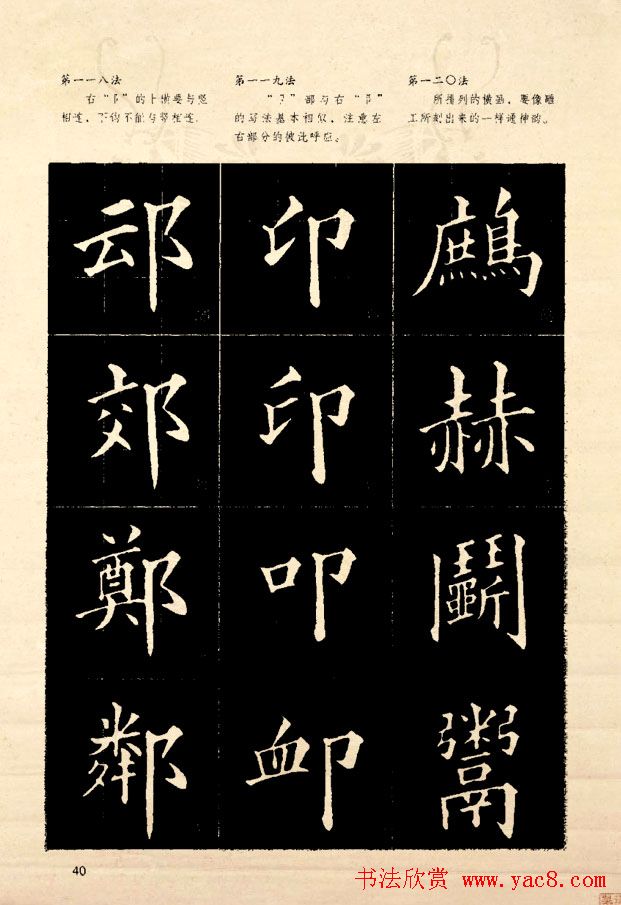 第一一八法
右“阝”的上横要与竖
相连，下钩不能与竖相连。
第一一九法
“卩”部与右“阝”
的写法基本相似，注意左
右部分的彼此呼应。
第一二〇法
所排列的横画，要像雕
工所刻出来的一样通神韵。
邧 印 鷓
郊 印 赫
鄭 叩 鬭
鄰 卹 鬻
40
书法欣赏 www.yac8.com